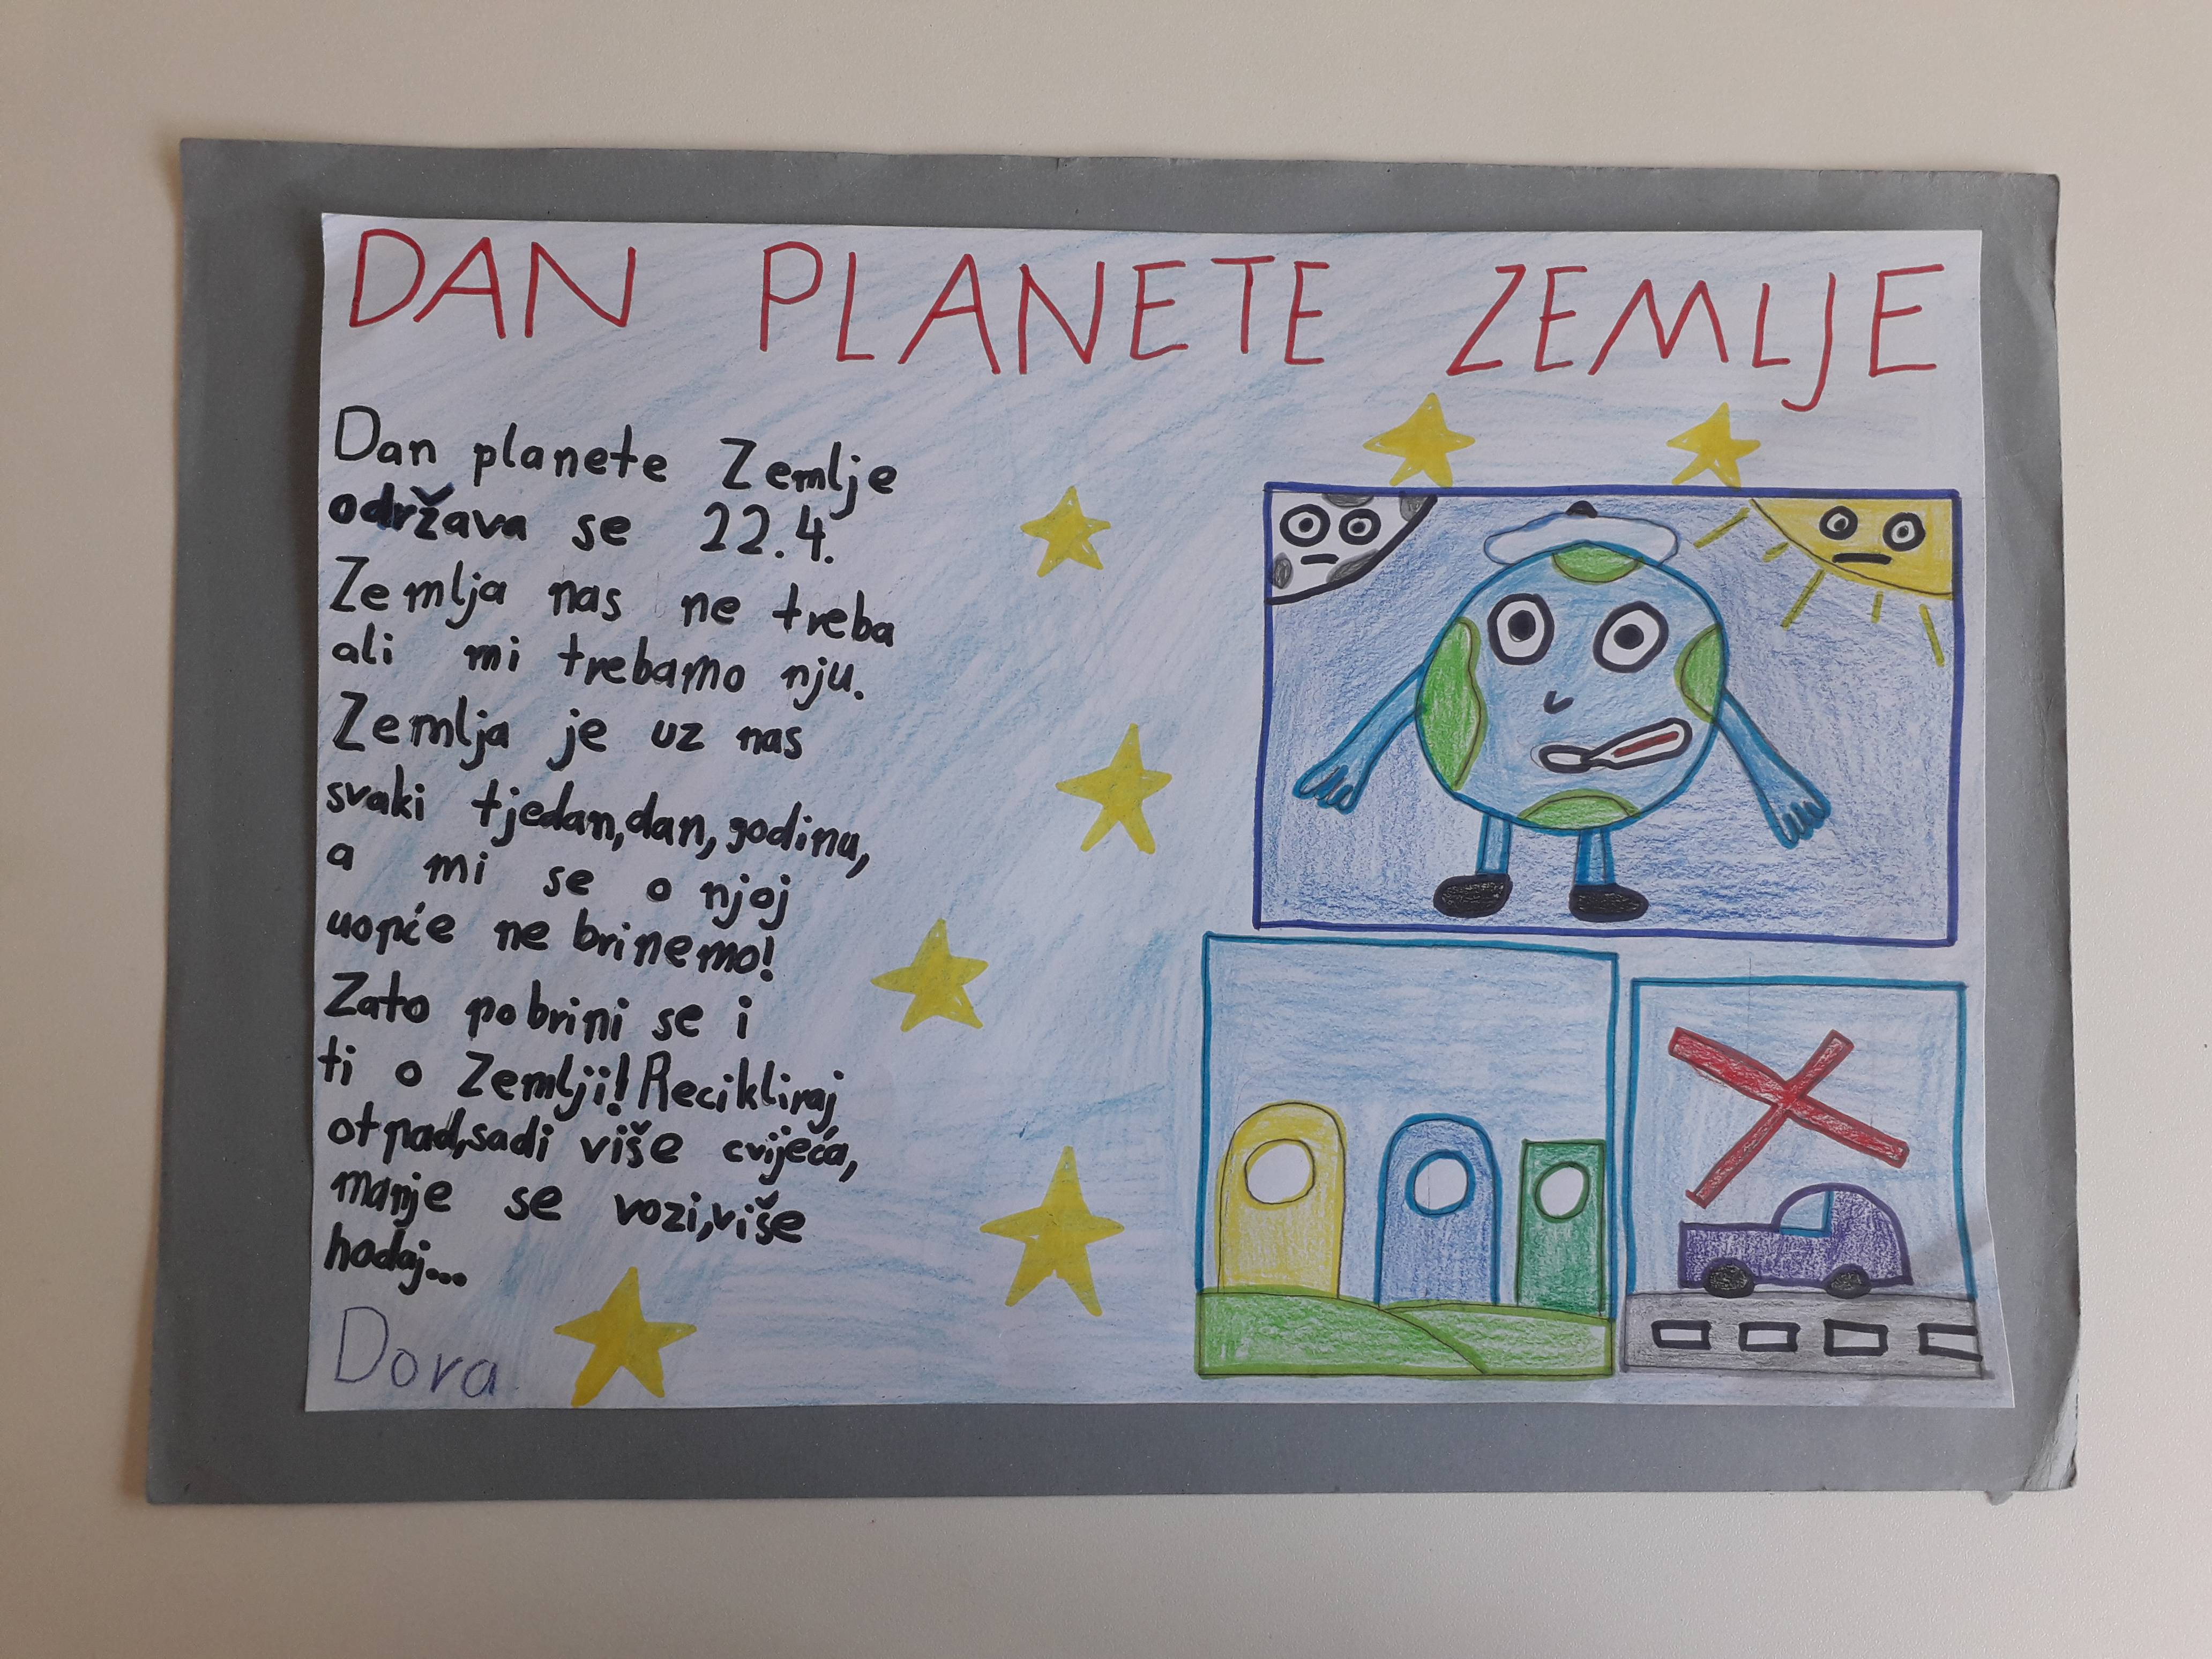 DAN PLANETE ZEMLJE
Dan planete Zemlje
održava se 22.4.
Zemlja nas ne treba
ali mi trebamo nju.
Zemlja je uz nas
svaki tjedan,dan,godinu,
a mi se o njoj
uopće ne brinemo!
Zato pobrini se i
ti o Zemlji!Recikliraj
otpad,sadi više cvijeća,
manje se vozi,više
hodaj...
Dora